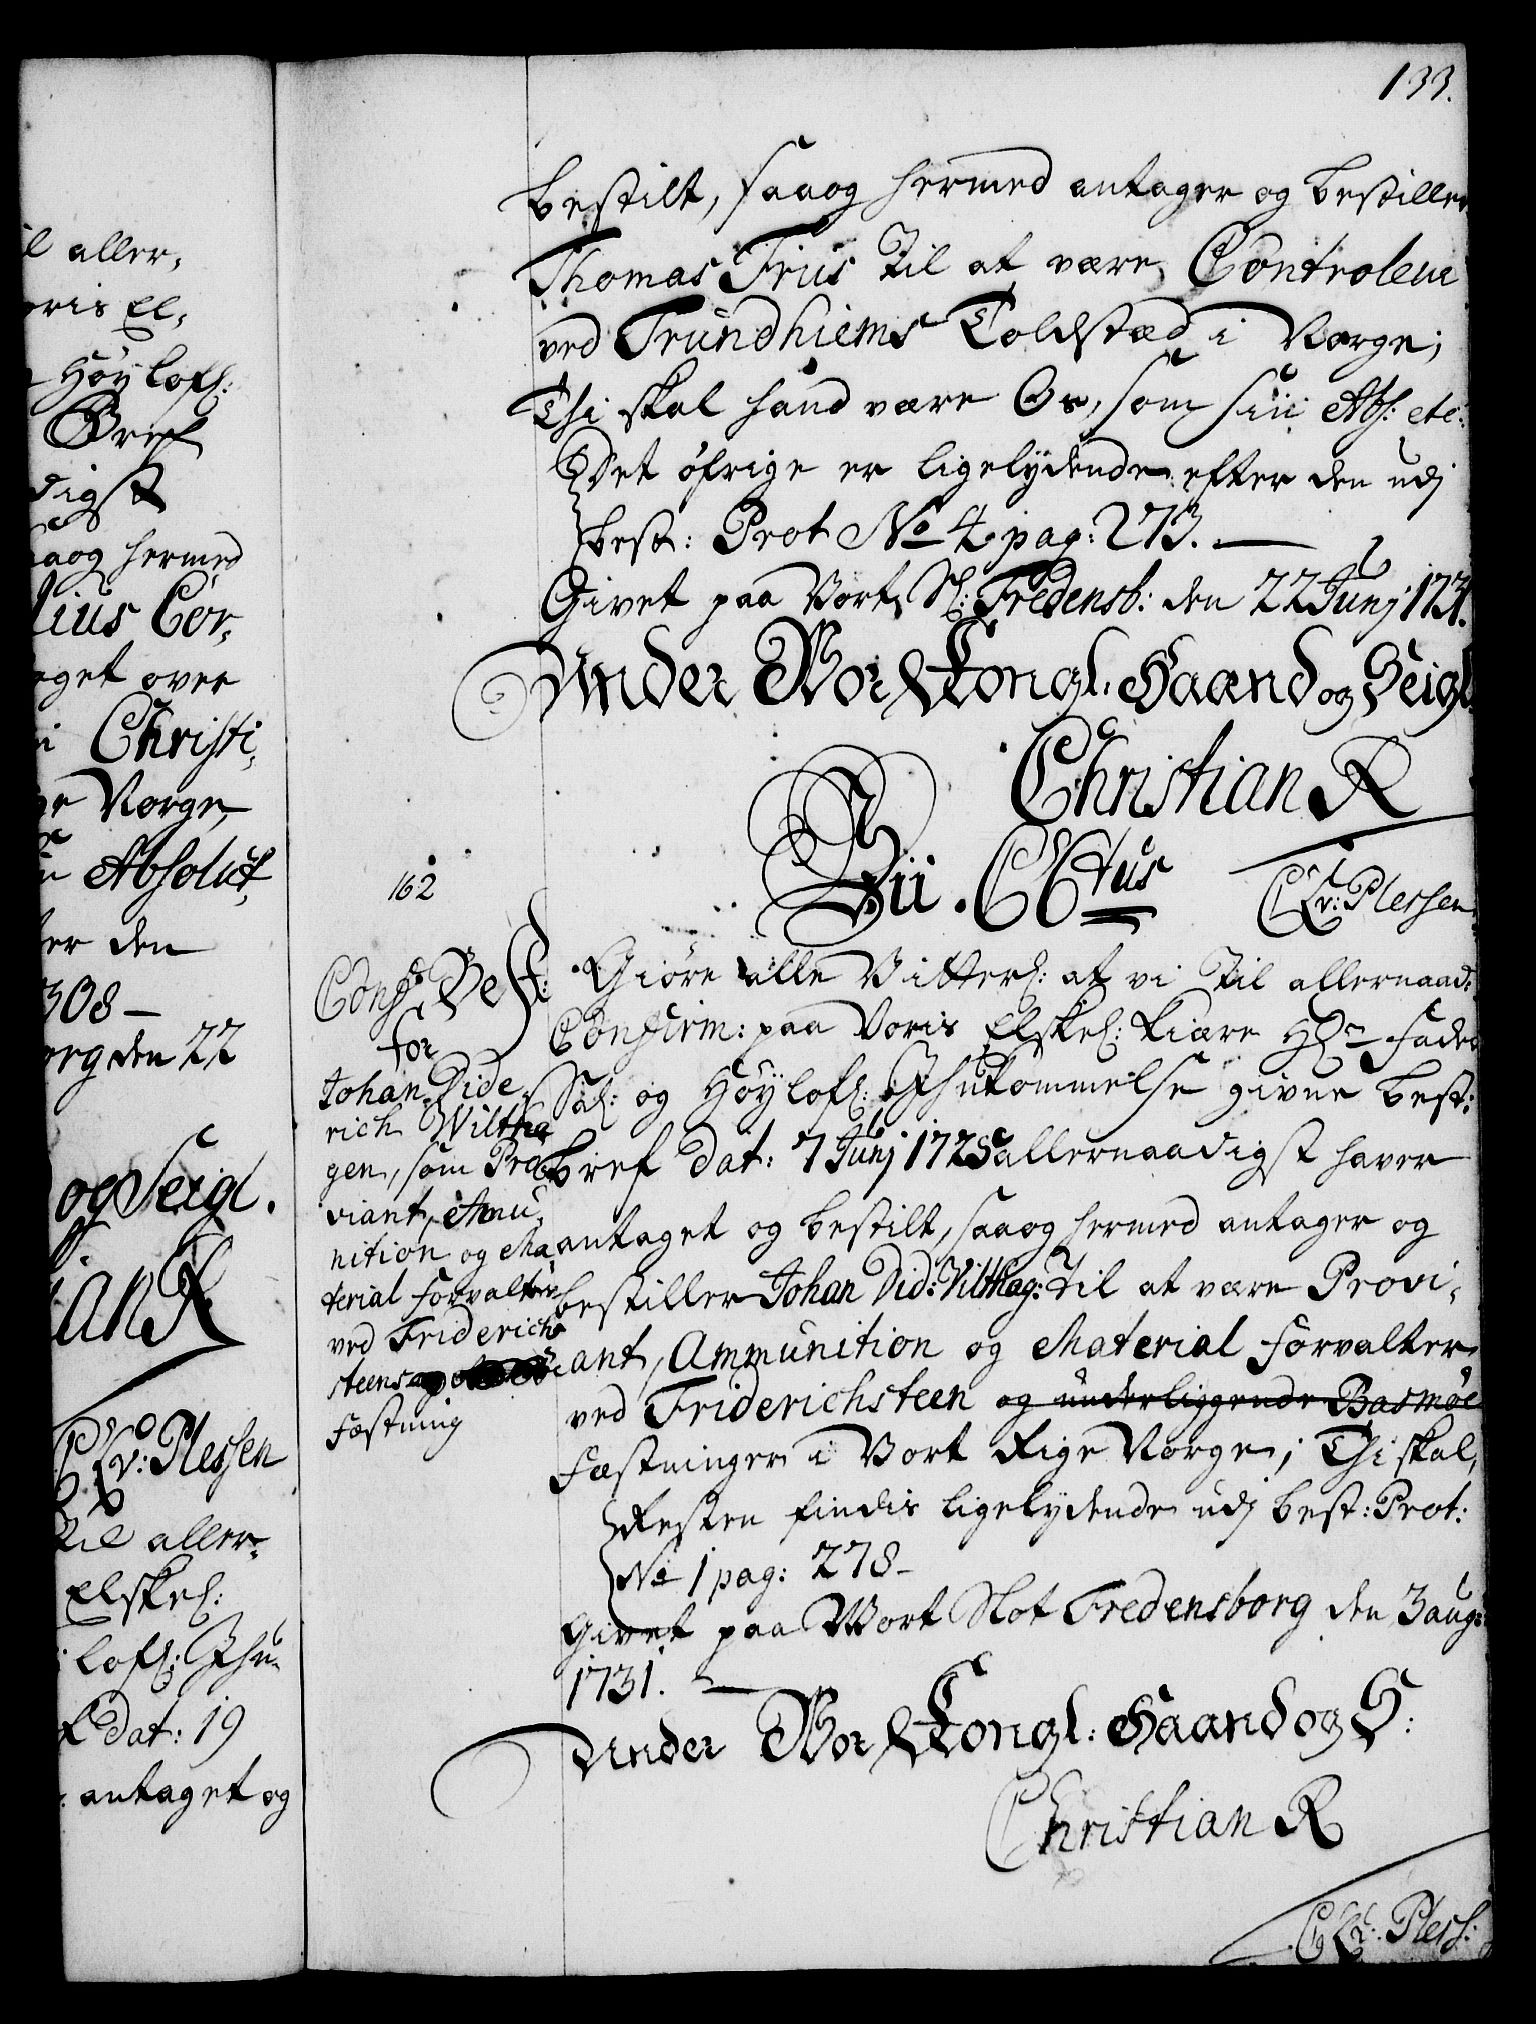 133.
bestilt, saaog hermed antager og bestiller
Thomas Friis til at være Controleur
ved Trundhiems Toldsted i Norge;
Thi skal hand være Os, som siji Abs: etc:
Det öfrige er ligelydende efter den udj
best: Prot No 4 pag: 273.
Givet paa Vort Sl: Fredensb: den 22 Junj 1731.
Under Vor Kongl. Haand og Seigl.
Christian R
Vii. C 6tus
C A v: Plessen
162
Conf: Best:
for
Johan Dide,
rich Wiltha
gen, som Pro
viant, Amu,
nition og Ma
terial forvalter
ved Friderich
steens
fæstning
Giöre alle Vitterl: at vi Til allernaad:
Confirm: paa Voris Elskel: kiære Hr Fader
Sal: og Höylofl: Ihukommelse givne best:
bref dat: 7 Junj 1725 allernaadigst haver
antaget og bestilt, saaog hermed antager og
bestiller Johan Did: Vilthag: Til at være Provi,
ant, Ammunition og Material forvalter
ved Friderichsteen og underliggende Basmöe
fæstninger i Vort Rige Norge; Thi skal,
Resten findis ligelydende udj best: Prot:
No 1 pag: 278
Givet paa Vort Slot Fredensborg den 3 aug:
1731.
Under Vor Kongl: Haand og S:
Christian R
C A v: Pless:
il aller,
oris El,
Höylofl:
Bref
digst
saaog hermed
lius Cor,
eget over
i Christi,
ge Norge,
Absolut,
ter den
308
org den 22
og Seigl.
ian R
C A v: Plessen
til aller,
Elskel:
lofl: Ihu,
dat: 19
antaget og